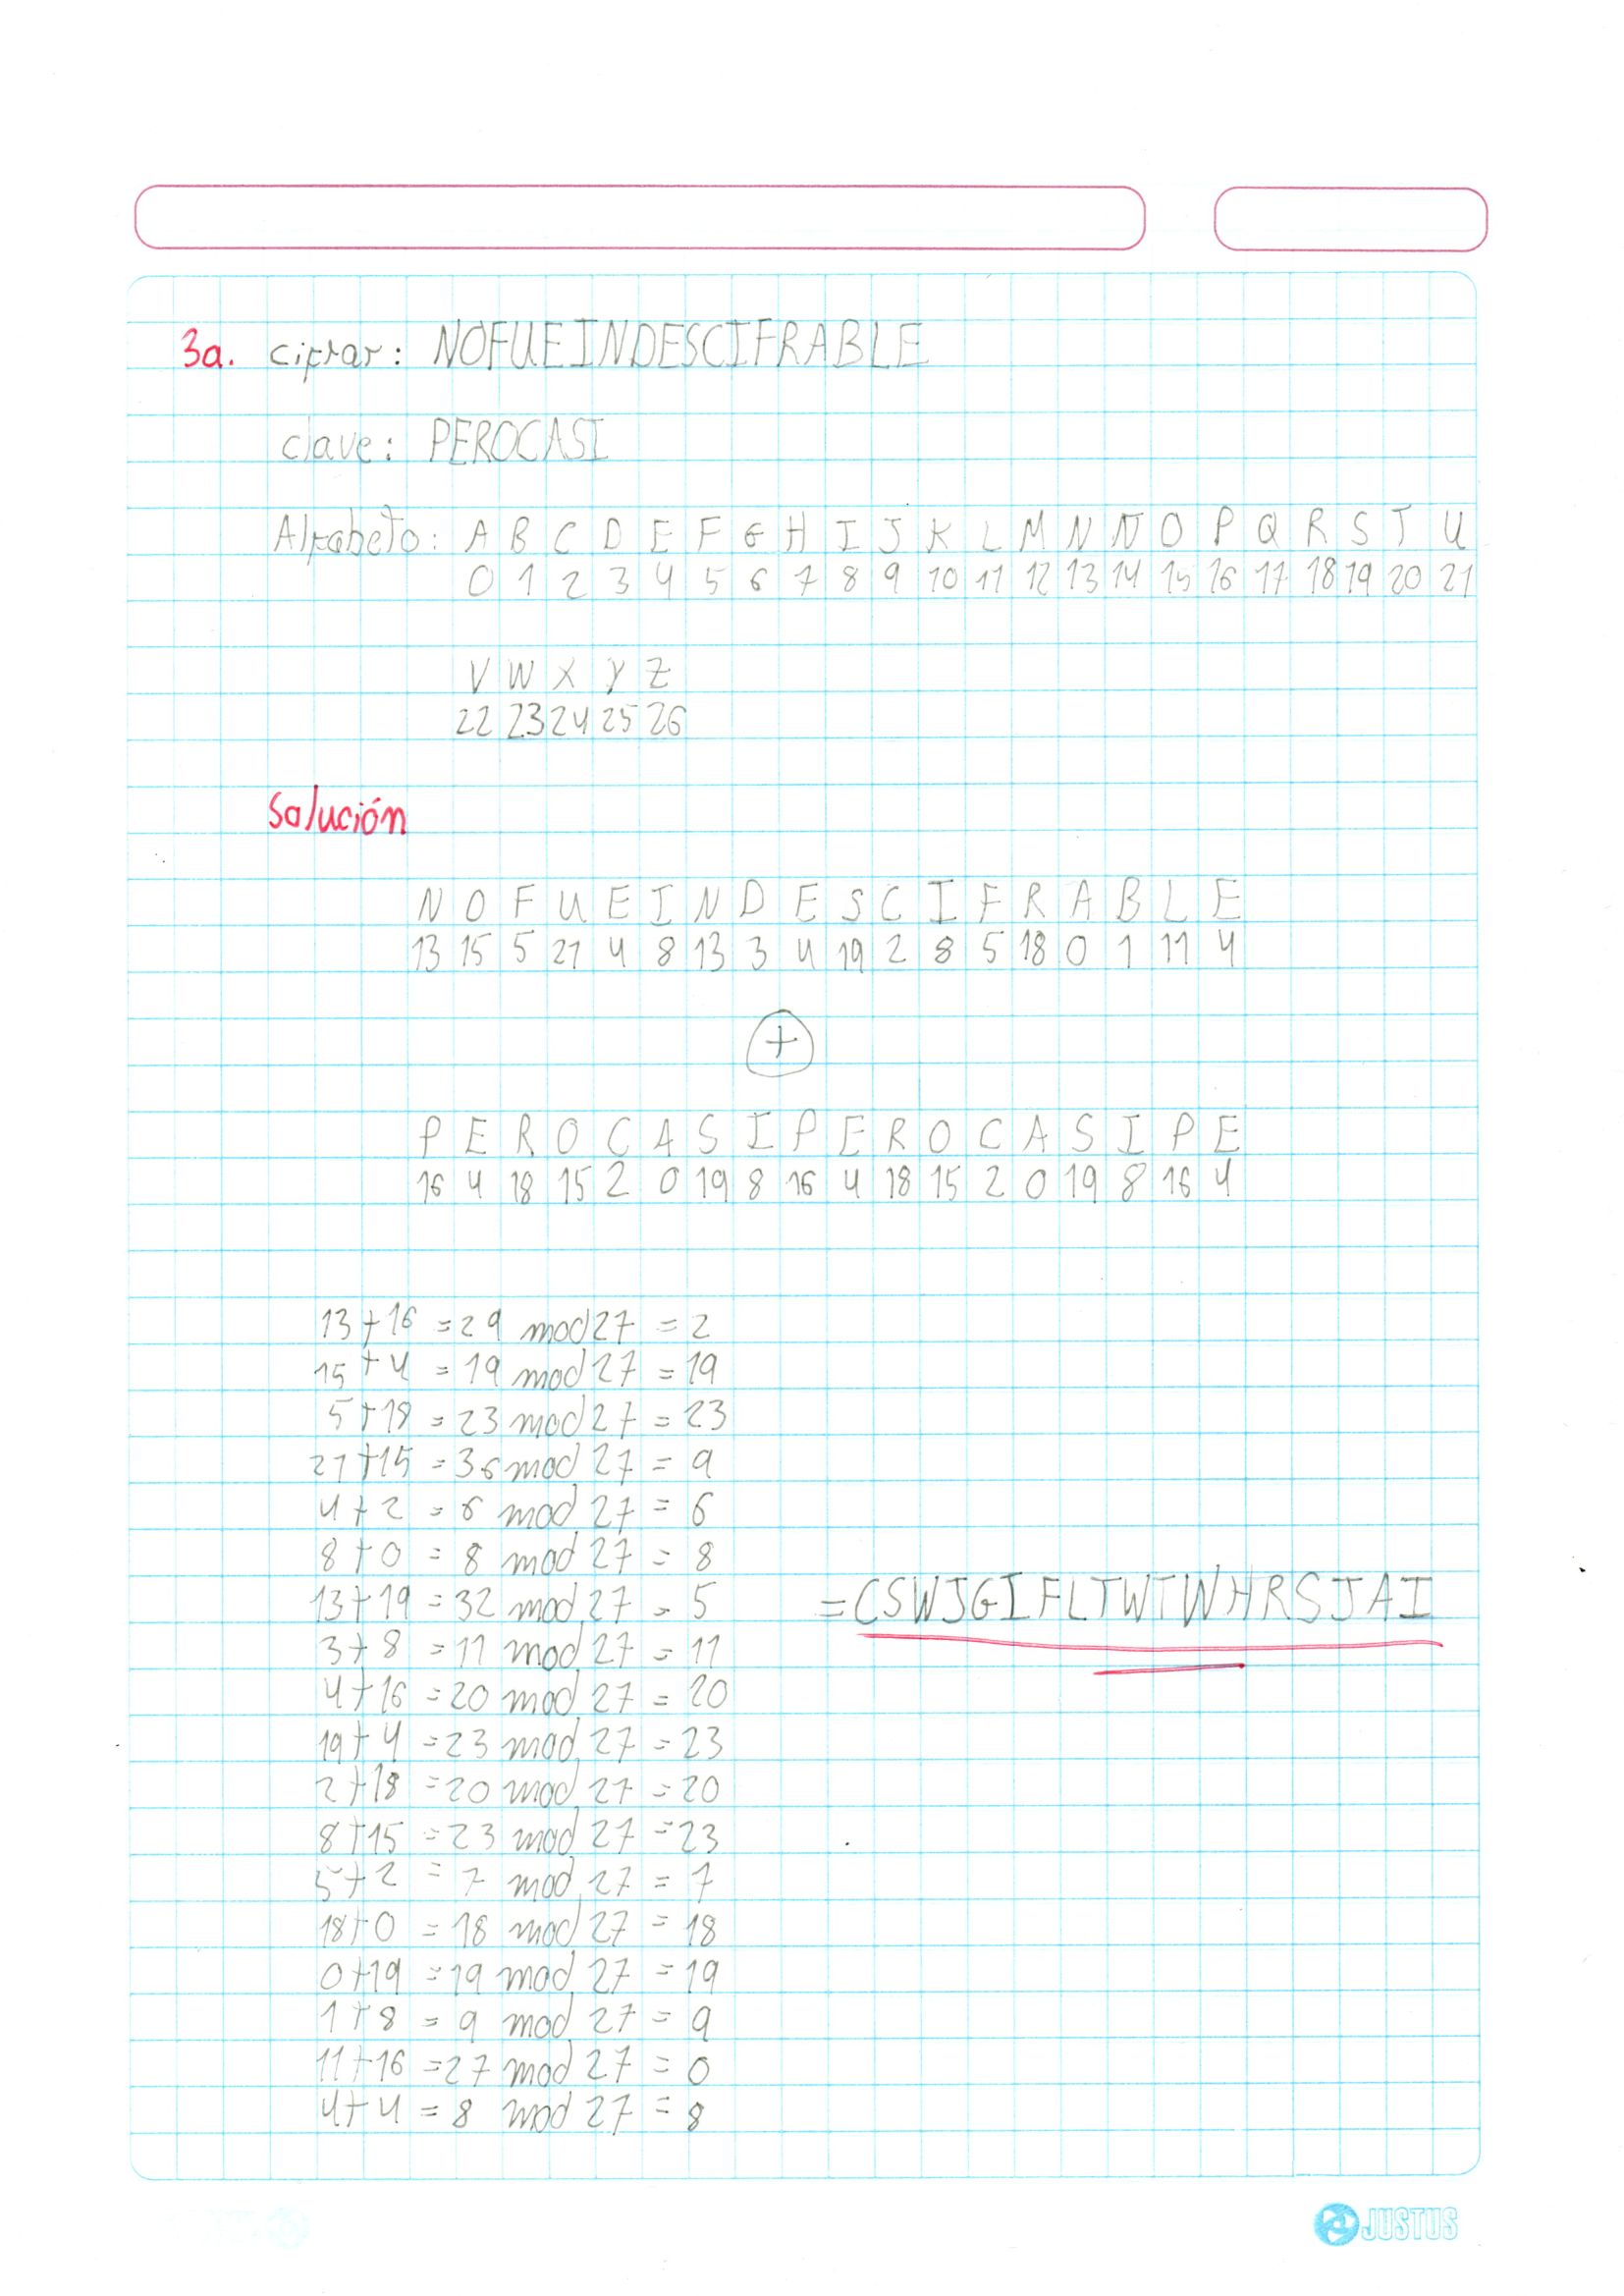 3a. cifrar: NOFUEINDESCIFRABLE
clave: PEROCASI
Alfabeto: A B C D E F G H I J K L M N Ñ O P Q R S T U
0 1 2 3 4 5 6 7 8 9 10 11 12 13 14 15 16 17 18 19 20 21
V W X Y Z
22 23 24 25 26
Solución
N O F U E I N D E S C I F R A B L E
13 15 5 21 4 8 13 3 4 19 2 8 5 18 0 1 11 4
+
P E R O C A S I P E R O C A S I P E
16 4 18 15 2 0 19 8 16 4 18 15 2 0 19 8 16 4
13+16 = 29 mod 27 = 2
15+4 = 19 mod 27 = 19
5+18 = 23 mod 27 = 23
21+15 = 36 mod 27 = 9
4+2 = 6 mod 27 = 6
8+0 = 8 mod 27 = 8
13+19 = 32 mod 27 = 5
=CSWJGIFLTWTWHRSJAI
3+8 = 11 mod 27 = 11
4+16 = 20 mod 27 = 20
19+4 = 23 mod 27 = 23
2+18 = 20 mod 27 = 20
8+15 = 23 mod 27 = 23
5+2 = 7 mod 27 = 7
18+0 = 18 mod 27 = 18
0+19 = 19 mod 27 = 19
1+8 = 9 mod 27 = 9
11+16 = 27 mod 27 = 0
4+4 = 8 mod 27 = 8
JUSTUS